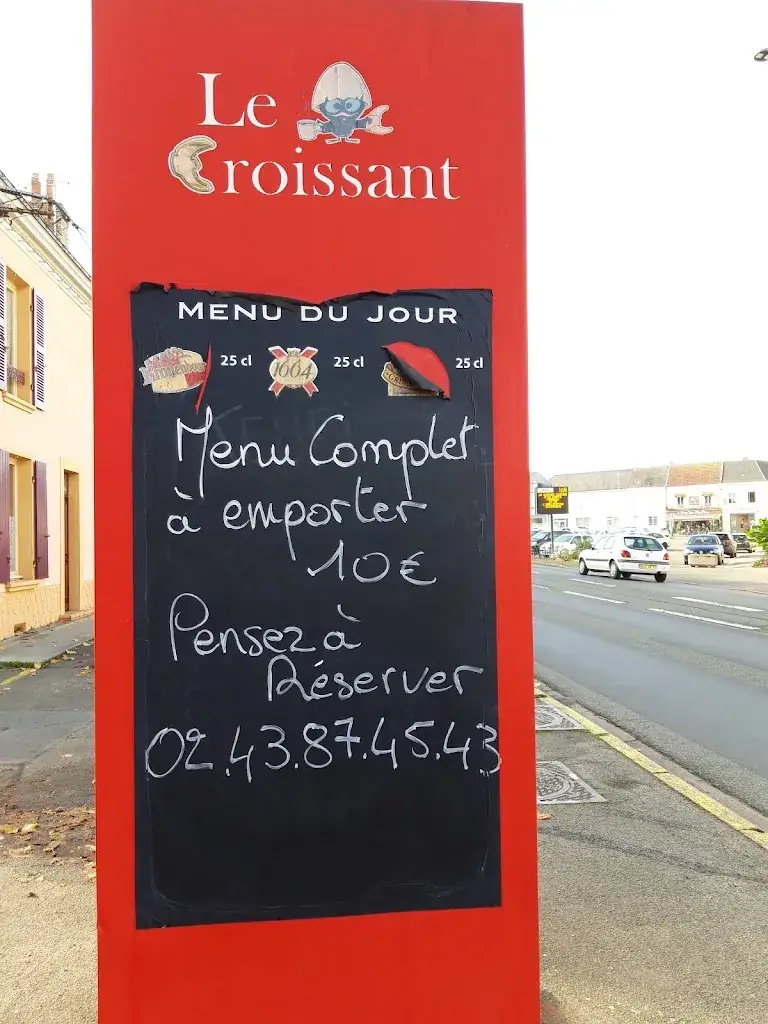 Le
Croissant
MENU DU JOUR
25 cl 1664 25 cl 25 cl
Menu Complet
à emporter
10€
Pensez à
Réserver
02.43.87.45.43